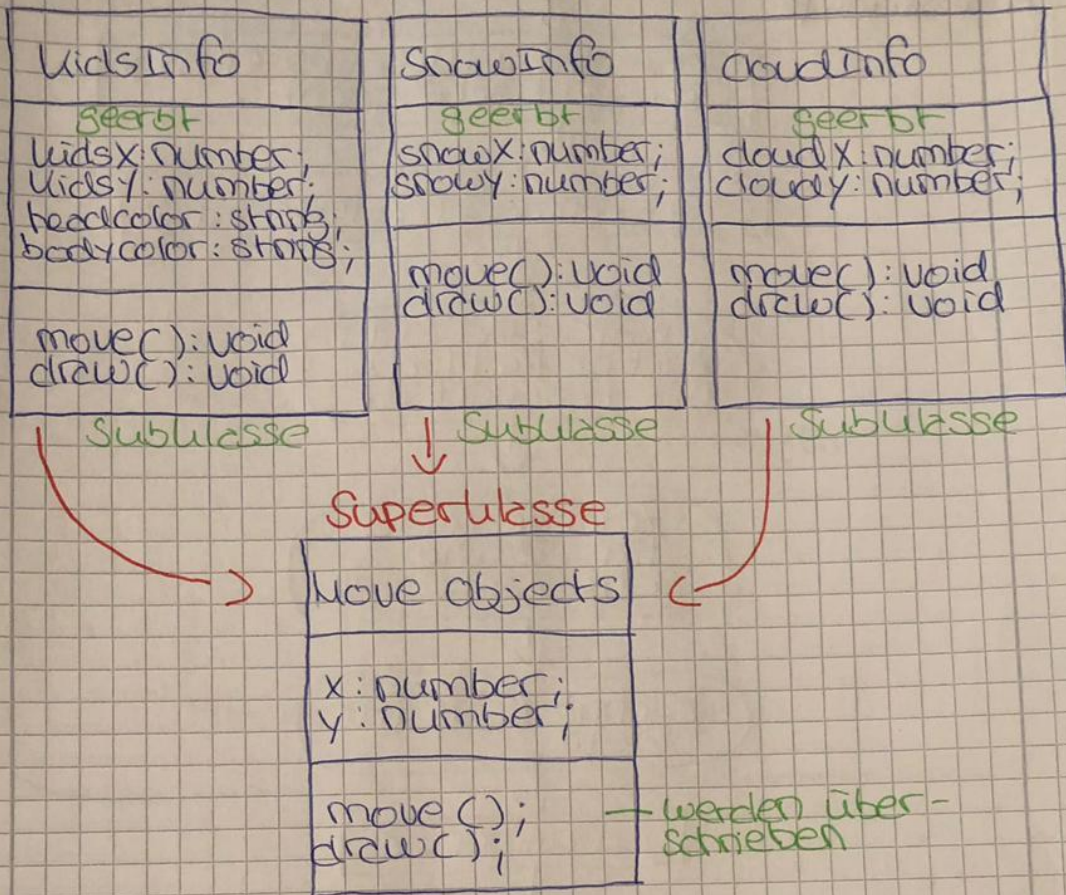 KidsInfo
geerbt
kidsX:number;
kidsY:number;
headcolor:string;
bodycolor:string;
move():void
draw():void
Subklasse
SnowInfo
geerbt
snowX:number;
snowy:number;
move():void
draw():void
Subklasse
CloudInfo
geerbt
cloudX:number;
cloudy:number;
move():void
draw():void
Subklasse
Superklasse
Move Objects
x:number;
y:number;
move();
draw();
werden über-
schrieben